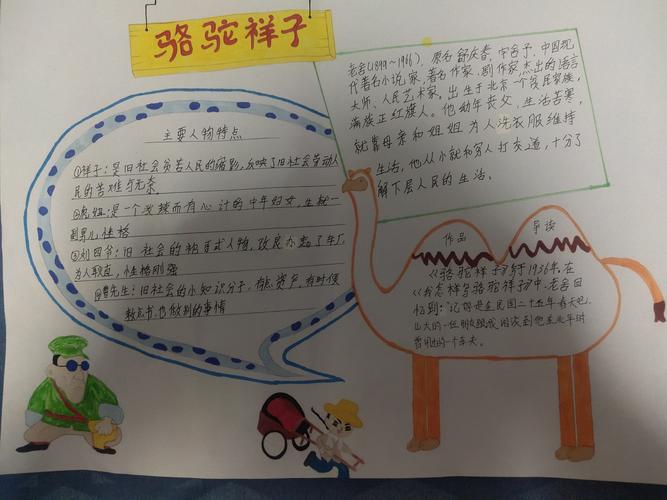 骆驼祥子
老舍(1899~1966),原名舒庆春,字舍予,中国现
代著名小说家,著名作家,剧作家杰出的语言
大师、人民艺术家,出生于北京一个贫民家族,
满族正红旗人。他幼年丧父,生活苦寒,
就靠母亲和姐姐为人洗衣服维持
生活,他从小就和穷人打交道,十分了
解下层人民的生活。
主要人物特点
①祥子:是旧社会贫苦人民的缩影,反映了旧社会劳动人
民的苦难与无奈
②虎妞:是一个泼辣而有心计的中年妇女,生就一
副男儿性格
③刘四爷:旧社会的袍哥式人物,改良办起了车厂
为人耿直,性格刚强
④曹先生:旧社会的小知识分子,有点资产,有时候
教点书,也做别的事情
作品 导读
《骆驼祥子》写于1936年,在
《我怎样写骆驼祥子》中,老舍回
忆到:"记得是在民国二十五年春天吧,
山大的一位朋友跟我闲谈到他在北平时
曾用过的一个车夫。